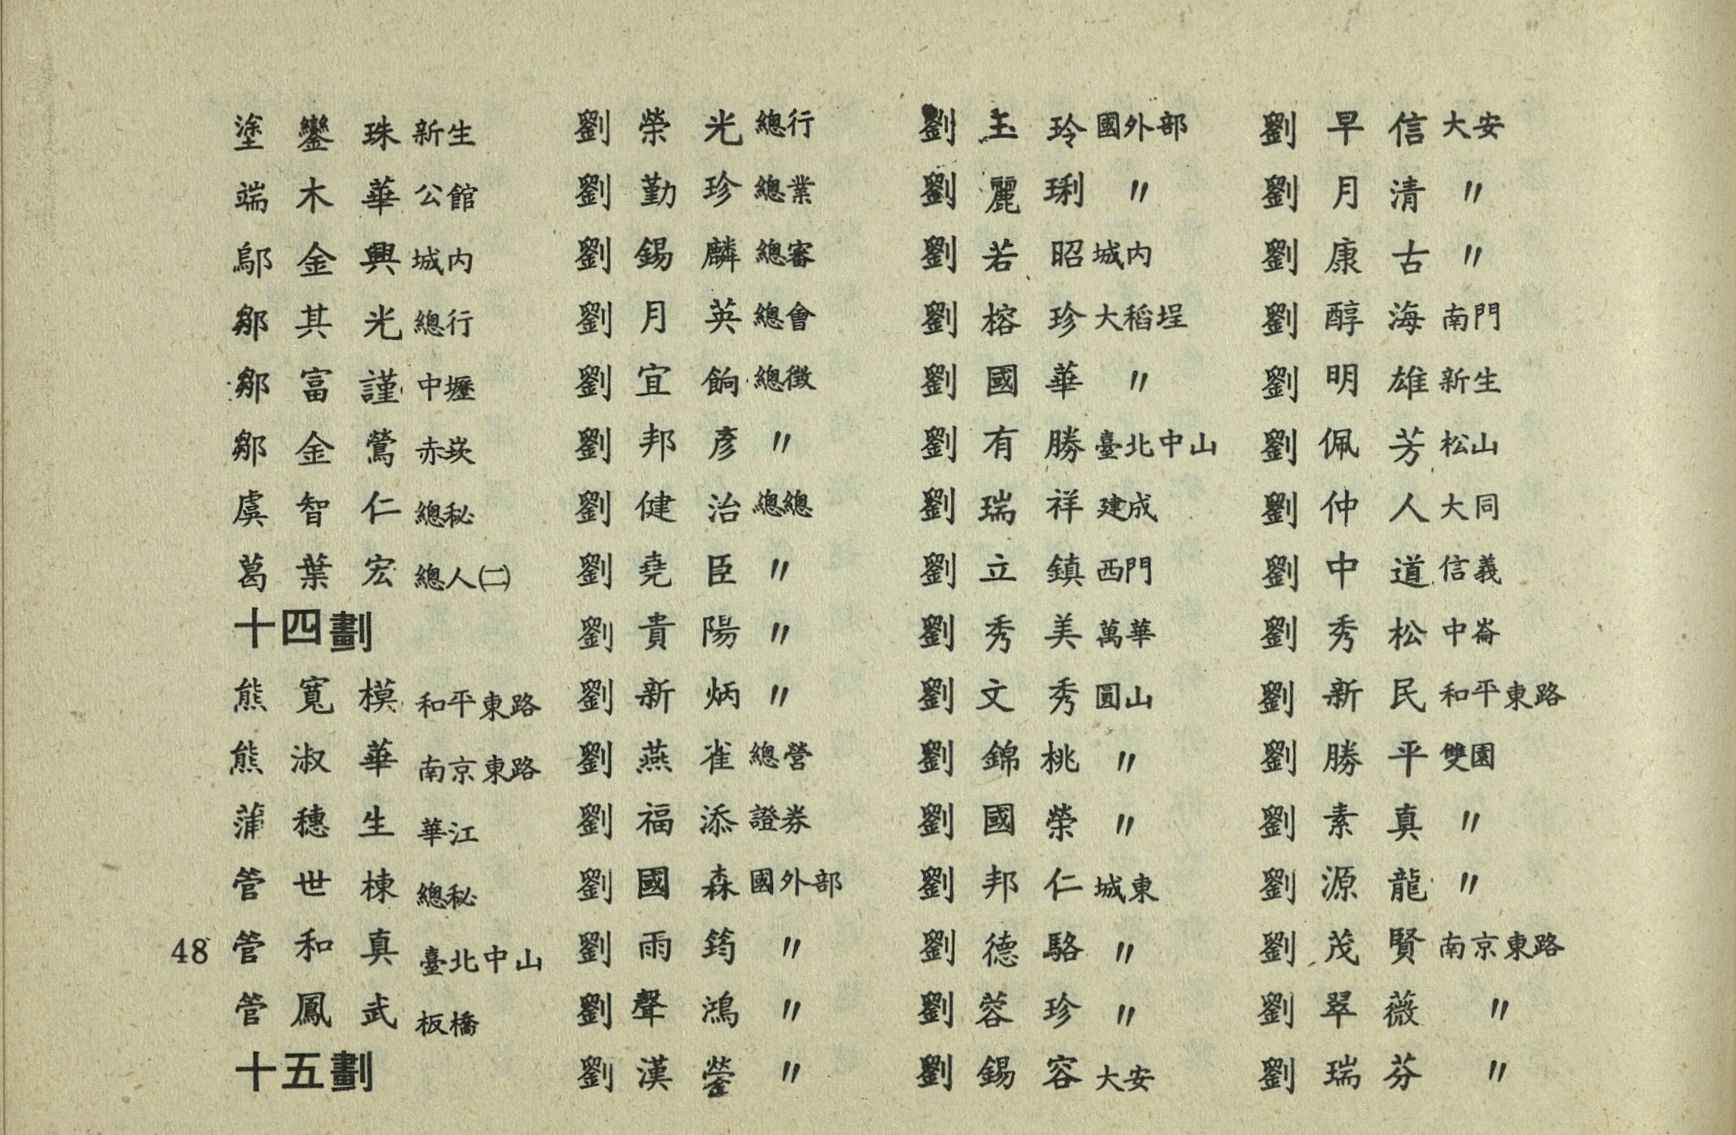 塗鑾珠 新生
端木華 公館
鄔金興 城內
鄒其光 總行
鄒富謹 中壢
鄒金鶯 赤崁
虞智仁 總秘
葛葉宏 總人㈡
十四劃
熊寬模 和平東路
熊淑華 南京東路
蒲穗生 華江
管世棟 總秘
管和真 臺北中山
管鳳武 板橋
十五劃
劉榮光 總行
劉勤珍 總業
劉錫麟 總審
劉月英 總會
劉宜餉 總徵
劉邦彥 〃
劉健治 總總
劉堯臣 〃
劉貴陽 〃
劉新炳 〃
劉燕雀 總營
劉福添 證券
劉國森 國外部
劉雨筠 〃
劉聲鴻 〃
劉漢鎣 〃
劉玉玲 國外部
劉麗琍 〃
劉若昭 城內
劉榕珍 大稻埕
劉國華 〃
劉有勝 臺北中山
劉瑞祥 建成
劉立鎮 西門
劉秀美 萬華
劉文秀 圓山
劉錦桃 〃
劉國榮 〃
劉邦仁 城東
劉德駱 〃
劉蓉珍 〃
劉錫容 大安
劉早信 大安
劉月清 〃
劉康古 〃
劉醇海 南門
劉明雄 新生
劉佩芳 松山
劉仲人 大同
劉中道 信義
劉秀松 中崙
劉新民 和平東路
劉勝平 雙園
劉素真 〃
劉源龍 〃
劉茂賢 南京東路
劉翠薇 〃
劉瑞芬 〃
48